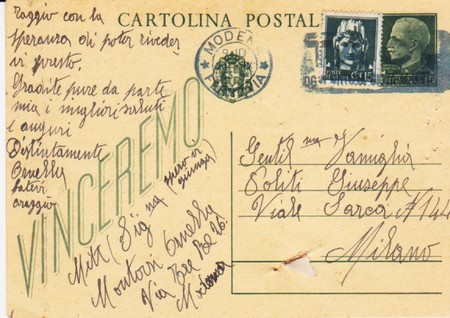 CARTOLINA POSTALE
raggio con la
speranza di poter riveder
vi presto.
Gradite pure da parte
mia i migliori saluti
e auguri
Distintamente
Ornella
coraggio
MODENA
FERROVIA
VINCEREMO
Gentil ma Famiglia
Politi Giuseppe
Viale Sarca N 144
Milano
spero vi
giunga
Mitt/ Sig na
Montovi Ornella
Via Tre Re 26
Modena